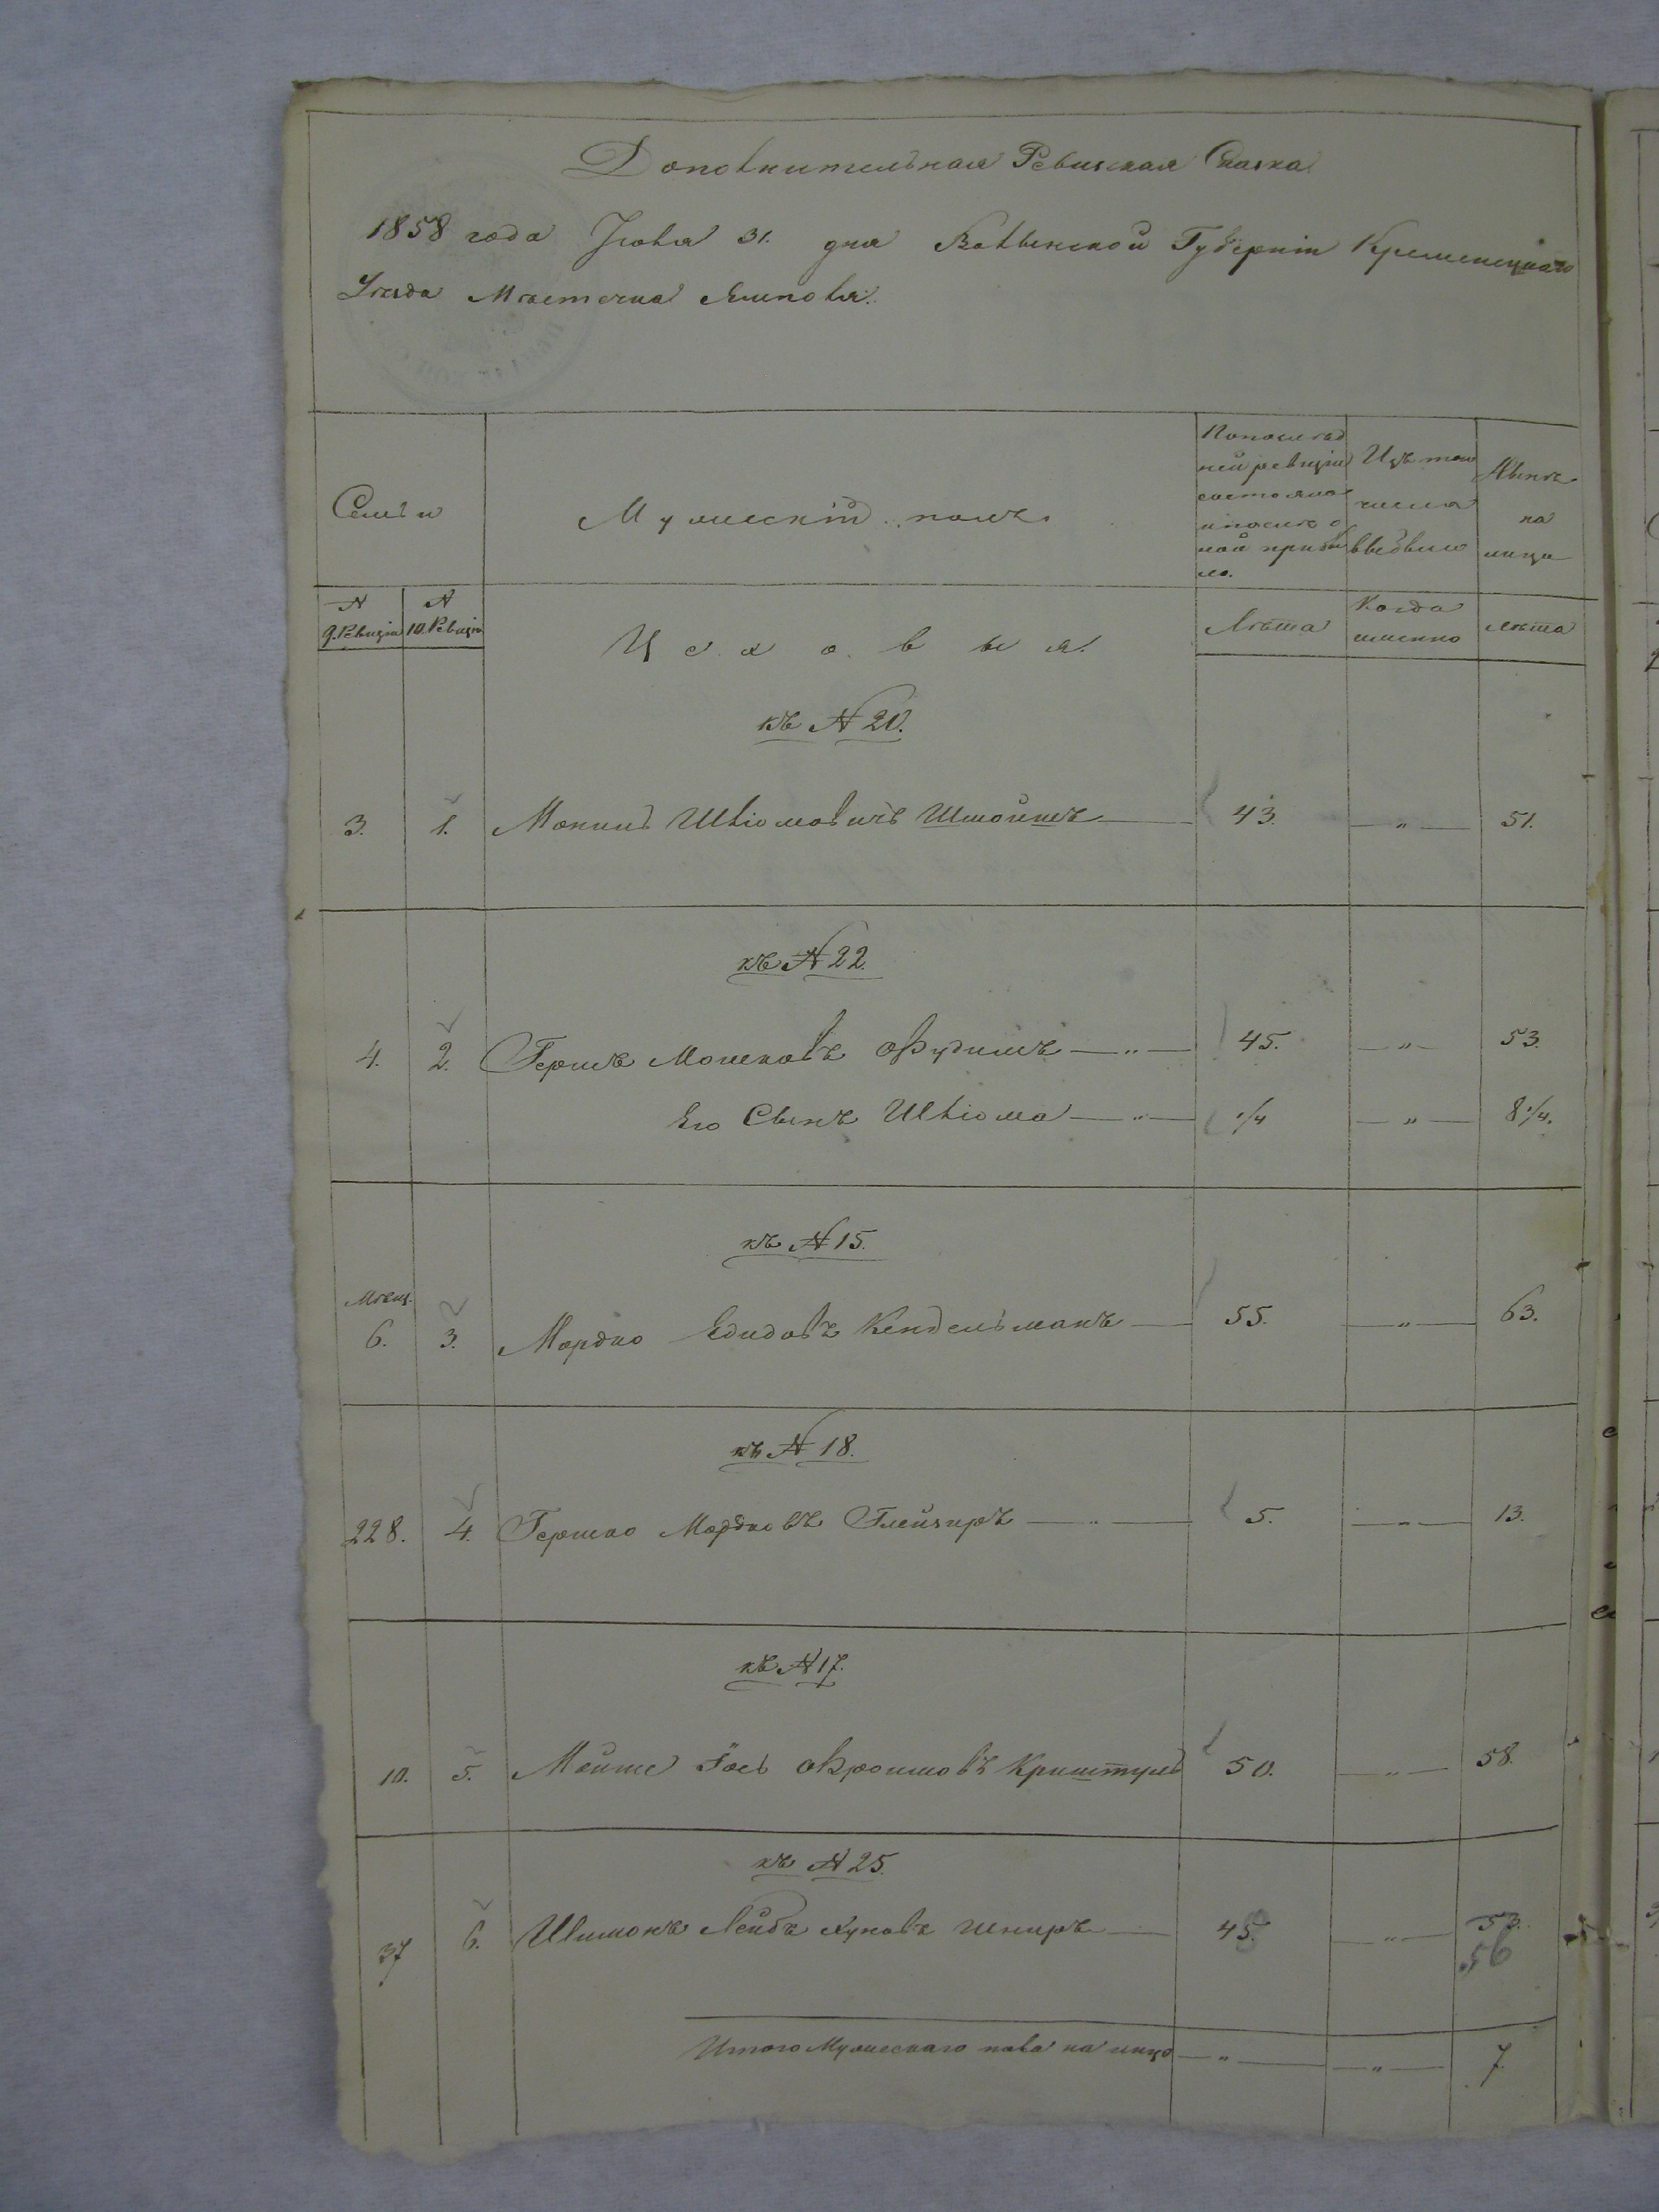 Дополнительная Ревизская Сказка
1858 года Іюля 31. дня Волынской Губерніи Кременецкаго
Уѣзда Мѣстечка Ямполя.
Семьи
Мужескій полъ.
Попослѣд
ней ревизіи
состояло
ипослѣ о
ной прибы
ло.
Изъ того
числа
выбыло
Нынѣ
на
лицо
N
9. Ревизіи
N
10. Ревизіи
Цеховыя.
Лѣта
Когда
именно
лѣта
къ N 20.
3. 1. Мошко Шліомовичъ 43. — „ — 51.
къ N 22.
4. 2. Гершъ Мошковъ — „ — 45. — „ — 53.
Его Сынъ Шліома — „ — 1/4 — „ — 8 1/4.
къ N 15.
Мѣщ.
6. 3. Мордко Едидовъ Кендельманъ — 55. — „ — 63.
къ N 18.
228. 4. Гершко Мордковъ Глейзиръ — „ — 5. — „ — 13.
къ N 17.
10. 5. Мойше Іось Авроимовъ Криштулъ 50. — „ — 58.
къ N 25.
37 6. Шлимонъ Лейбъ Шниръ — 45. — „ — 53.
56
Итого Мужескаго пола на лицо — „ — — „ — 7.